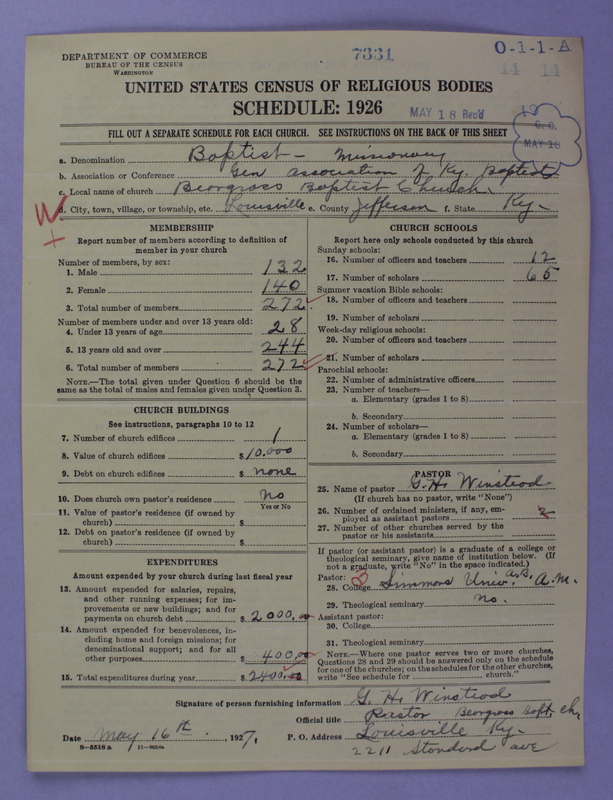 DEPARTMENT OF COMMERCE
BUREAU OF THE CENSUS
WASHINGTON
7331
O-1-1-A
14 11
UNITED STATES CENSUS OF RELIGIOUS BODIES
SCHEDULE: 1926
MAY 18 Rec'd
MAY 18
FILL OUT A SEPARATE SCHEDULE FOR EACH CHURCH. SEE INSTRUCTIONS ON THE BACK OF THIS SHEET
a. Denomination Baptist - Missionary
b. Association or Conference Gen Association of Ky. Baptists
c. Local name of church Beorgrass Baptist Church.
d. City, town, village, or township, etc. Louisville e. County Jefferson f. State Ky-
W
MEMBERSHIP
Report number of members according to definition of
member in your church
Number of members, by sex:
1. Male 132
2. Female 140
3. Total number of members 272
Number of members under and over 13 years old:
4. Under 13 years of age 28
5. 13 years old and over 244
6. Total number of members 272
NOTE.—The total given under Question 6 should be
the same as the total of males and females given under Question 3.
CHURCH BUILDINGS
See instructions, paragraphs 10 to 12
7. Number of church edifices 1
8. Value of church edifices $ 10.000
9. Debt on church edifices $ none
10. Does church own pastor's residence No
Yes or No
11. Value of pastor's residence (if owned by
church) $
12. Debt on pastor's residence (if owned by
church) $
EXPENDITURES
Amount expended by your church during last fiscal year
13. Amount expended for salaries, repairs,
and other running expenses; for im-
provements or new buildings; and for
payments on church debt $ 2000.00
14. Amount expended for benevolences, in-
cluding home and foreign missions; for
denominational support; and for all
other purposes 400.00
15. Total expenditures during year $ 2400.00
CHURCH SCHOOLS
Report here only schools conducted by this church
Sunday schools:
16. Number of officers and teachers 12
17. Number of scholars 65
Summer vacation Bible schools:
18. Number of officers and teachers
19. Number of scholars
Week-day religious schools:
20. Number of officers and teachers
21. Number of scholars
Parochial schools:
22. Number of administrative officers
23. Number of teachers—
a. Elementary (grades 1 to 8)
b. Secondary
24. Number of scholars—
a. Elementary (grades 1 to 8)
b. Secondary
PASTOR
25. Name of pastor G. H. Winstead
(If church has no pastor, write "None")
26. Number of ordained ministers, if any, em-
ployed as assistant pastors 2
27. Number of other churches served by the
pastor or his assistants
If pastor (or assistant pastor) is a graduate of a college or
theological seminary, give name of institution below. (If
not a graduate, write "No" in the space indicated.)
Pastor:
28. College Simmons Univ. A.B. A.M.
29. Theological seminary No.
Assistant pastor:
30. College
31. Theological seminary
NOTE.—Where one pastor serves two or more churches,
Questions 28 and 29 should be answered only on the schedule
for one of the churches; on the schedules for the other churches,
write "See schedule for church."
Signature of person furnishing information G. H. Winstead
Official title Pastor Beorgrass Bapt. Ch,
Date May 16th, 1927,
P. O. Address Louisville Ky-
2211 Standard ave
8-5518a 11-9554a